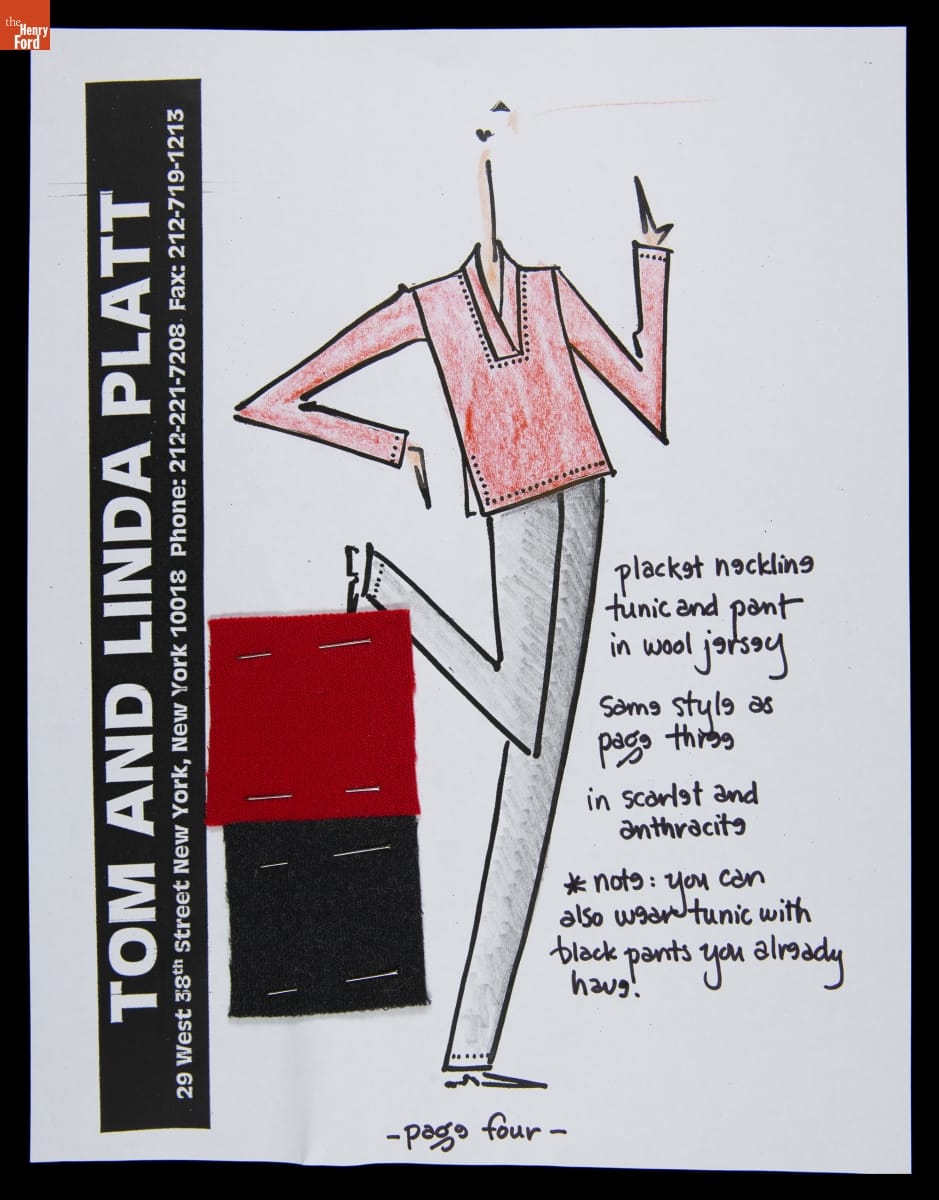 the
Henry
Ford
TOM AND LINDA PLATT
29 West 38th Street New York, New York 10018 Phone: 212-221-7208 Fax: 212-719-1213
placket neckline
tunic and pant
in wool jersey
same style as
page three
in scarlet and
anthracite
* note: you can
also wear tunic with
black pants you already
have!
-page four-